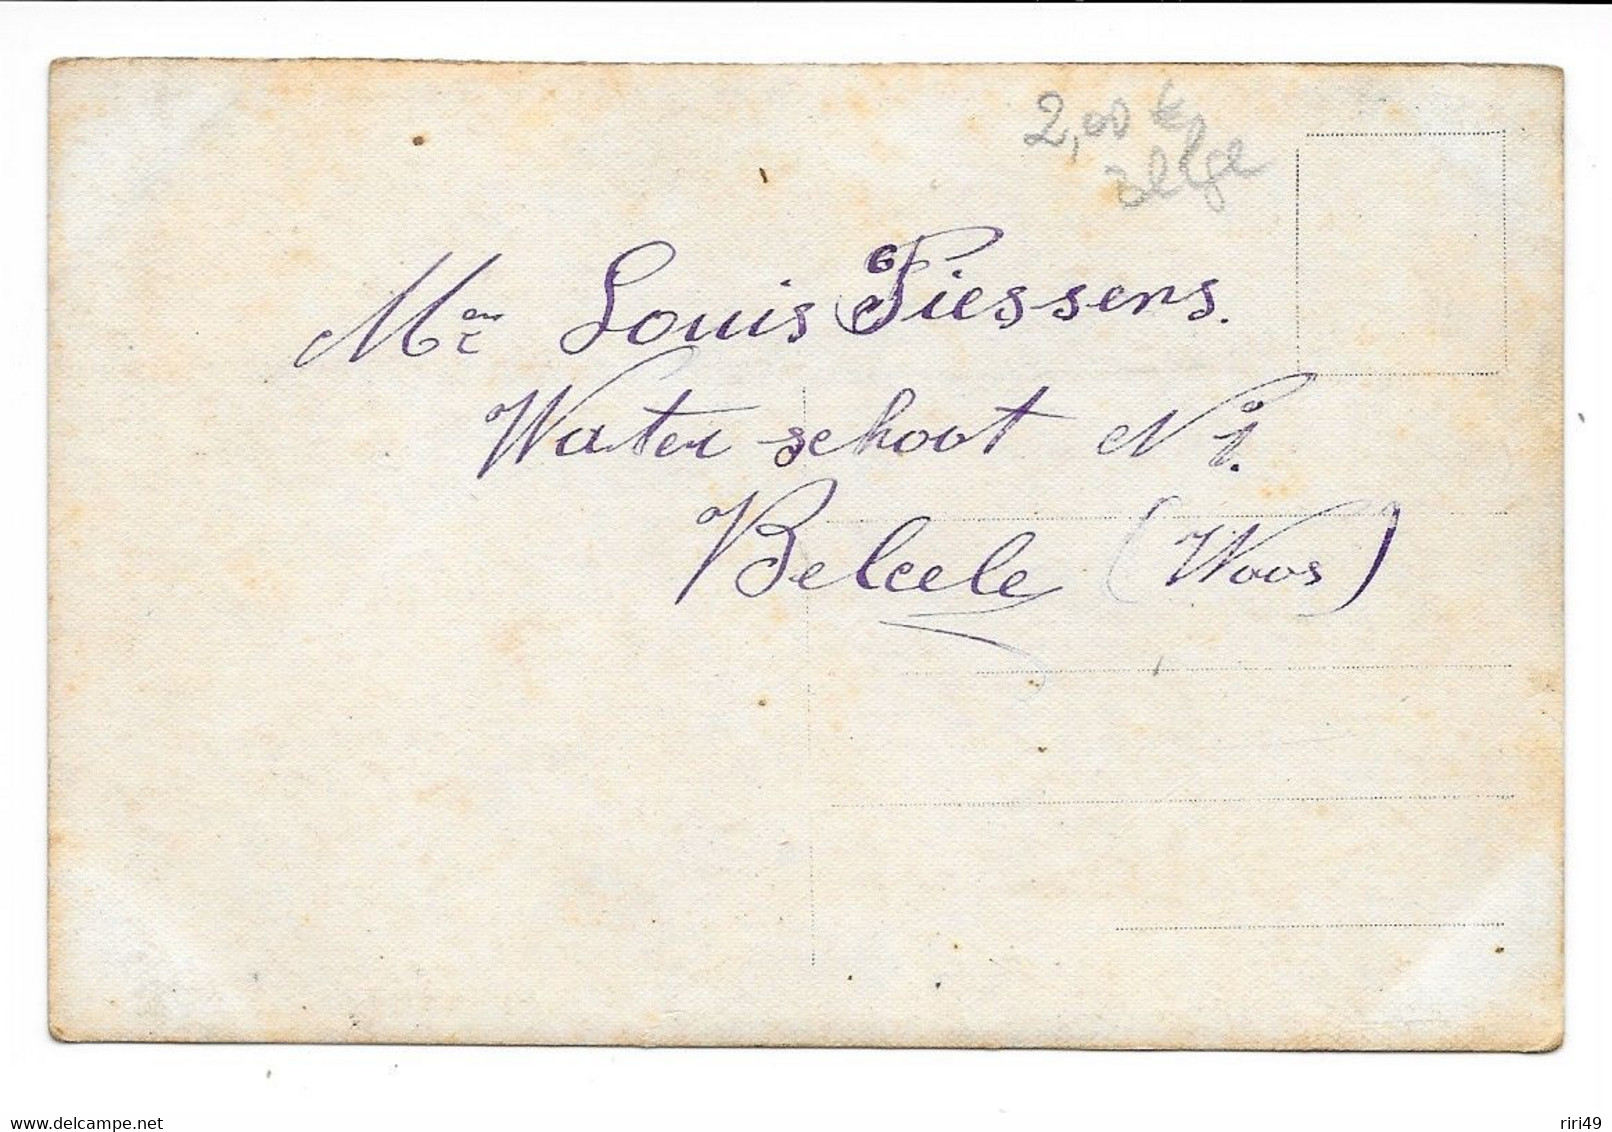 2,00 €
Belge
Mr Louis Piessens.
Waterschoot N 1.
Belcele (Waas)
www.delcampe.net
riri49